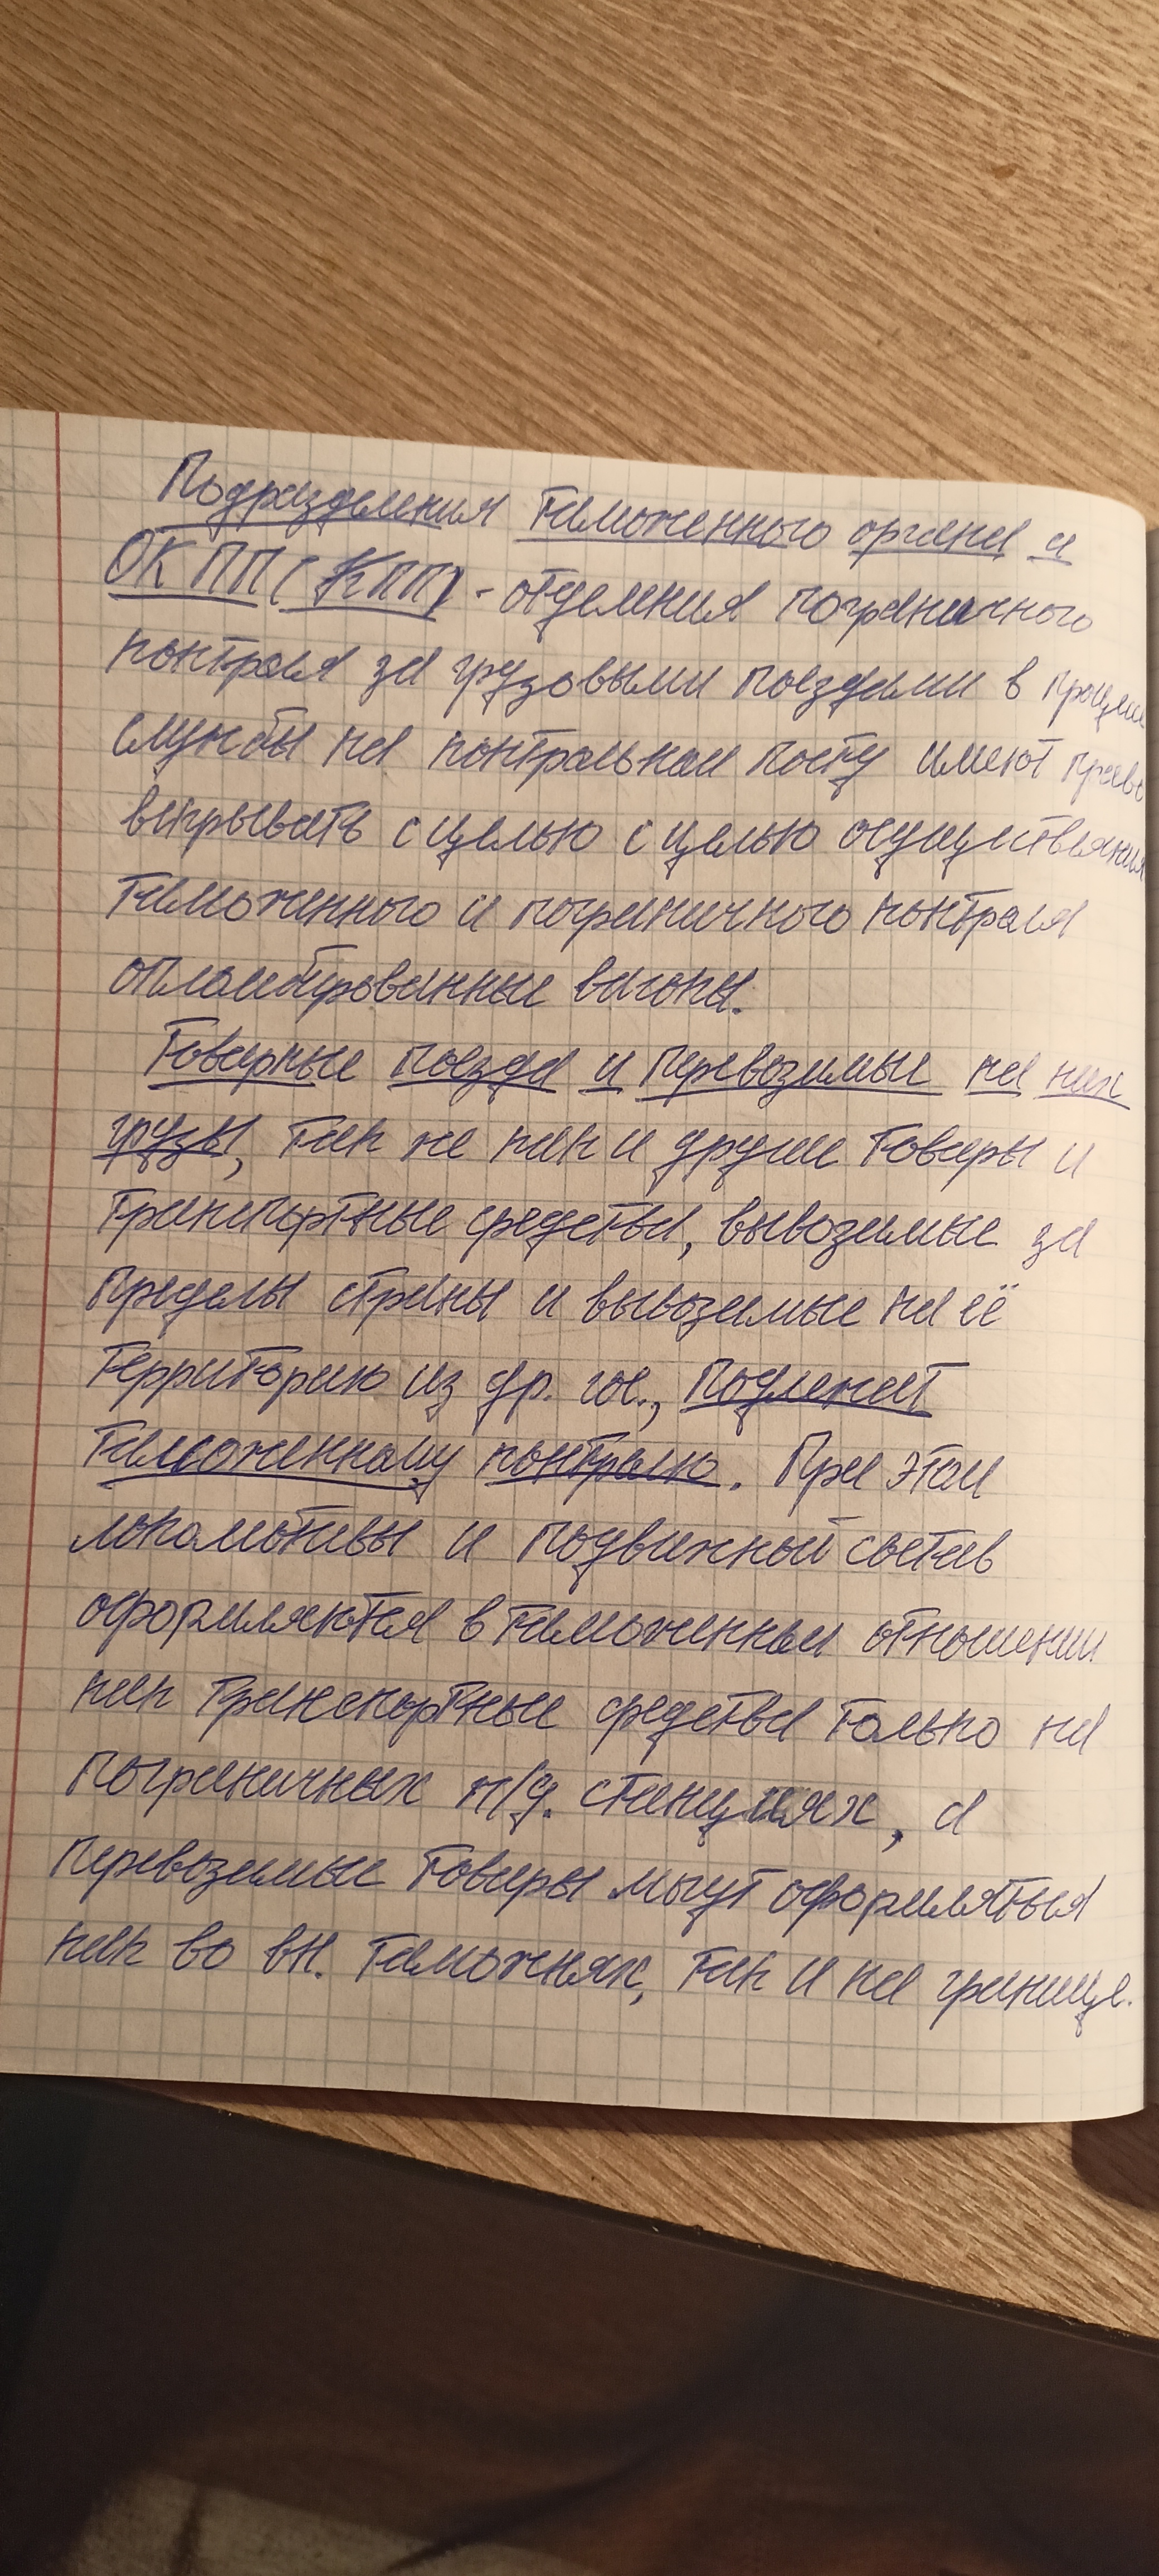 Подразделения таможенного органа и
ОКПП (КПП) - отделения пограничного
контроля за грузовыми поездами в процессе
службы на контрольном посту имеют право
вскрывать с целью с целью осуществления
таможенного и пограничного контроля
опломбированные вагоны.
Товарные поезда и перевозимые на них
грузы, так же как и другие товары и
транспортные средства, вывозимые за
пределы страны и ввозимые на её
территорию из др. гос., подлежат
таможенному контролю. При этом
локомотивы и подвижной состав
оформляются в таможенном отношении
как транспортные средства только на
пограничных ж/д. станциях, а
перевозимые товары могут оформляться
как во вн. таможнях, так и на границе.